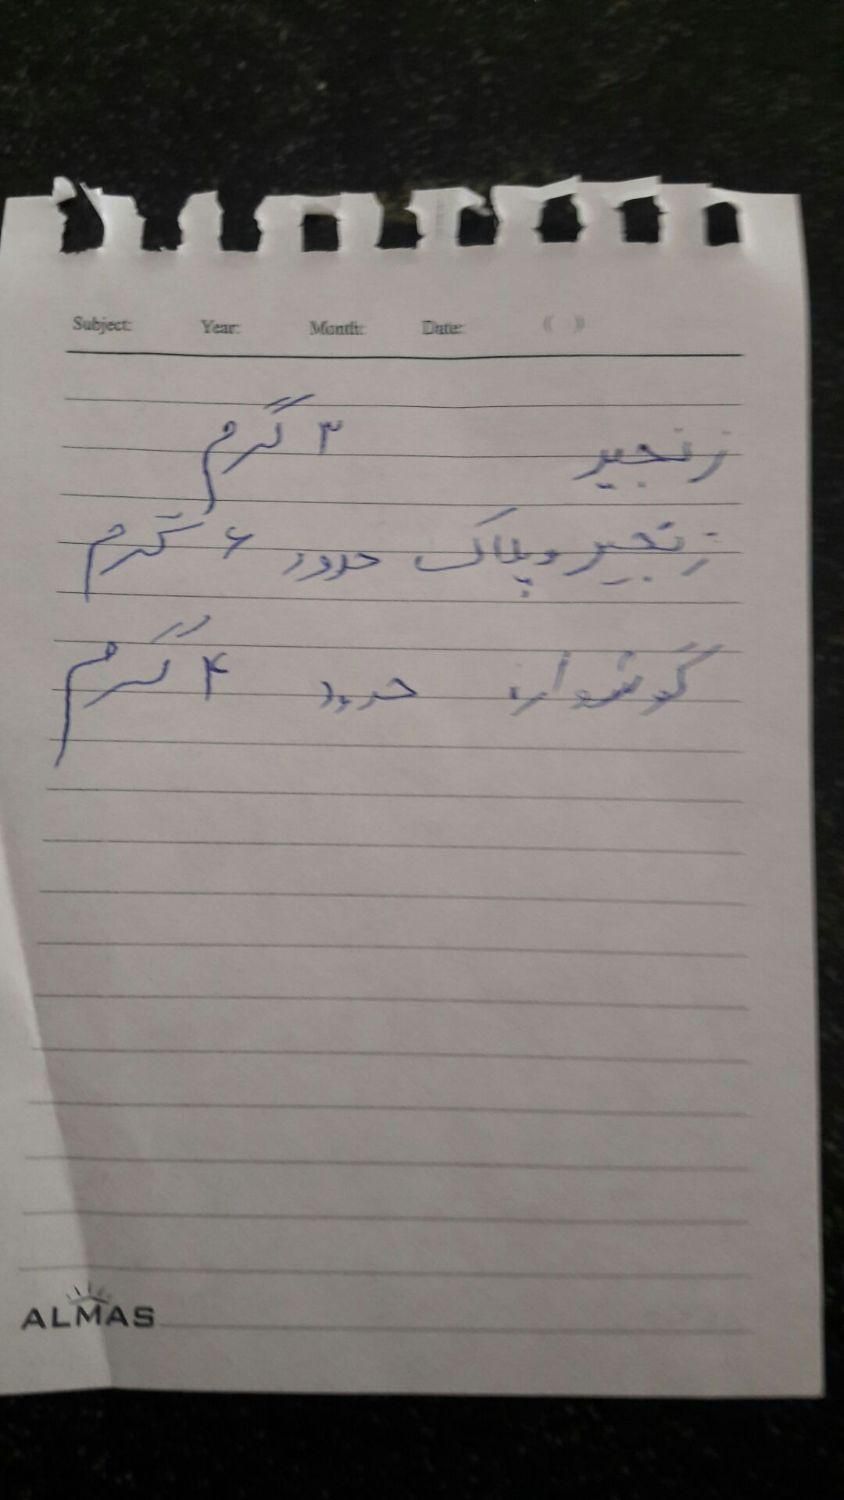 Subject: Year: Month: Date: ( )
زنجیر ۳ گرم
زنجیر و پلاک حدود ۶ گرم
گوشواره حدود ۴ گرم
ALMAS